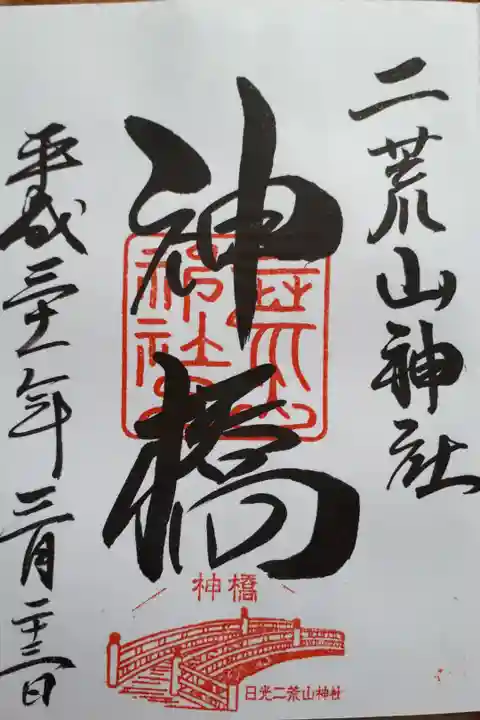 二荒山神社
神橋
平成三十一年三月二十三日
二荒山
神社
神橋
日光二荒山神社